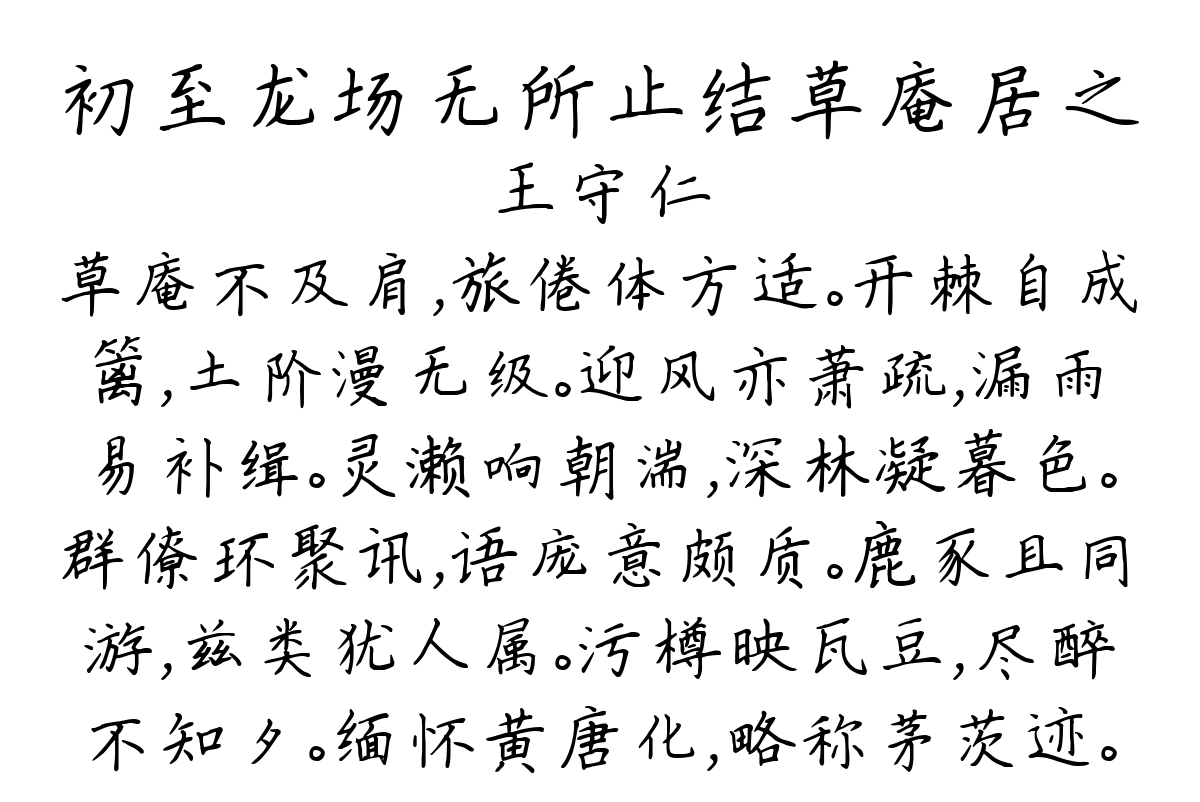 初至龙场无所止结草庵居之
王守仁
草庵不及肩,旅倦体方适。开棘自成
篱,土阶漫无级。迎风亦萧疏,漏雨
易补缉。灵濑响朝湍,深林凝暮色。
群僚环聚讯,语庞意颇质。鹿豕且同
游,兹类犹人属。污樽映瓦豆,尽醉
不知夕。缅怀黄唐化,略称茅茨迹。